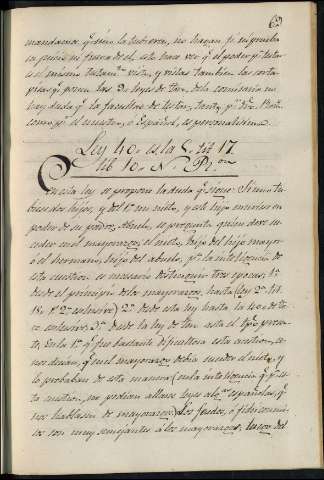 63
mandamos q.e si no la tubieren, no hagan, ni en prueba
ni fuera de el, esto hace ver q.e el poder p.a testar
es el mismo testam.to visto, y vistas tambien las corta
pisas q.e ponen las 3 leyes de Toro, dela comisaria no
hay duda q.e la facultad de testar, tanto p.r dro. Rom.
como p.r el nuestro, o Español, es personalísima.
Ley 40. es la 5. tit 17
lib 10. N. R.on
En esta ley se propone la duda q.e sigue: Si uno tu
biese dos hijos, y del 1.o un nieto, y este hijo muriese en
poder de su padre, Abuelo, se pregunta quien deve su
ceder en el mayorazgo, el nieto, hijo del hijo mayor
ó el hermano, hijo del abuelo, p.a la inteligencia de
esta cuestion es necesario distinguir tres epocas; 1.a
desde el principio delos mayorazgos, hasta (ley 2. tit.
15. P. 2. exclusive) 2.a desde esta ley hasta la 40. de To
ro exclusive 3.a desde la ley de Toro asta el tpo. presen
te. En la 1.a q.e fue bastante dificultosa esta cuestion, u
nos decian, q.e en el mayorazgo debia suceder el nieto, y
lo probaban de esta manera (en la inteligencia q.e p.a es
ta cuestion, no podian allarse leyes alg.as españolas, q.e
nos hablasen de mayorazgos) Los feudos, o fideicomi
sos son muy semejantes á los mayorazgos; luego del